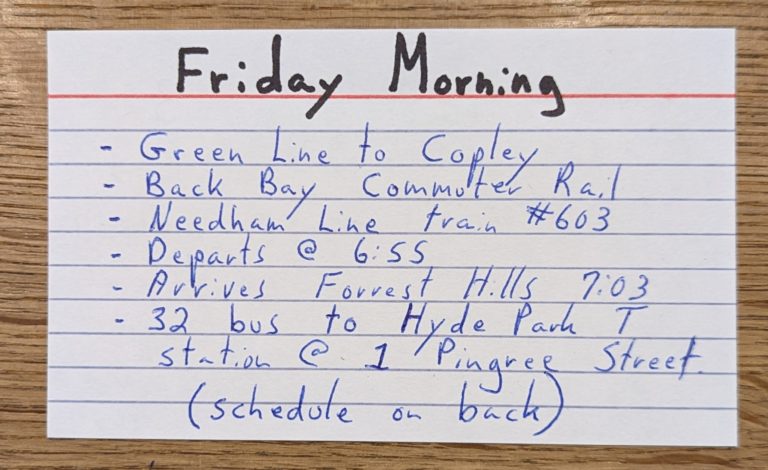 Friday Morning
- Green Line to Copley
- Back Bay Commuter Rail
- Needham Line train #603
- Departs @ 6:55
- Arrives Forrest Hills 7:03
- 32 bus to Hyde Park T
station @ 1 Pingree Street.
(schedule on back)